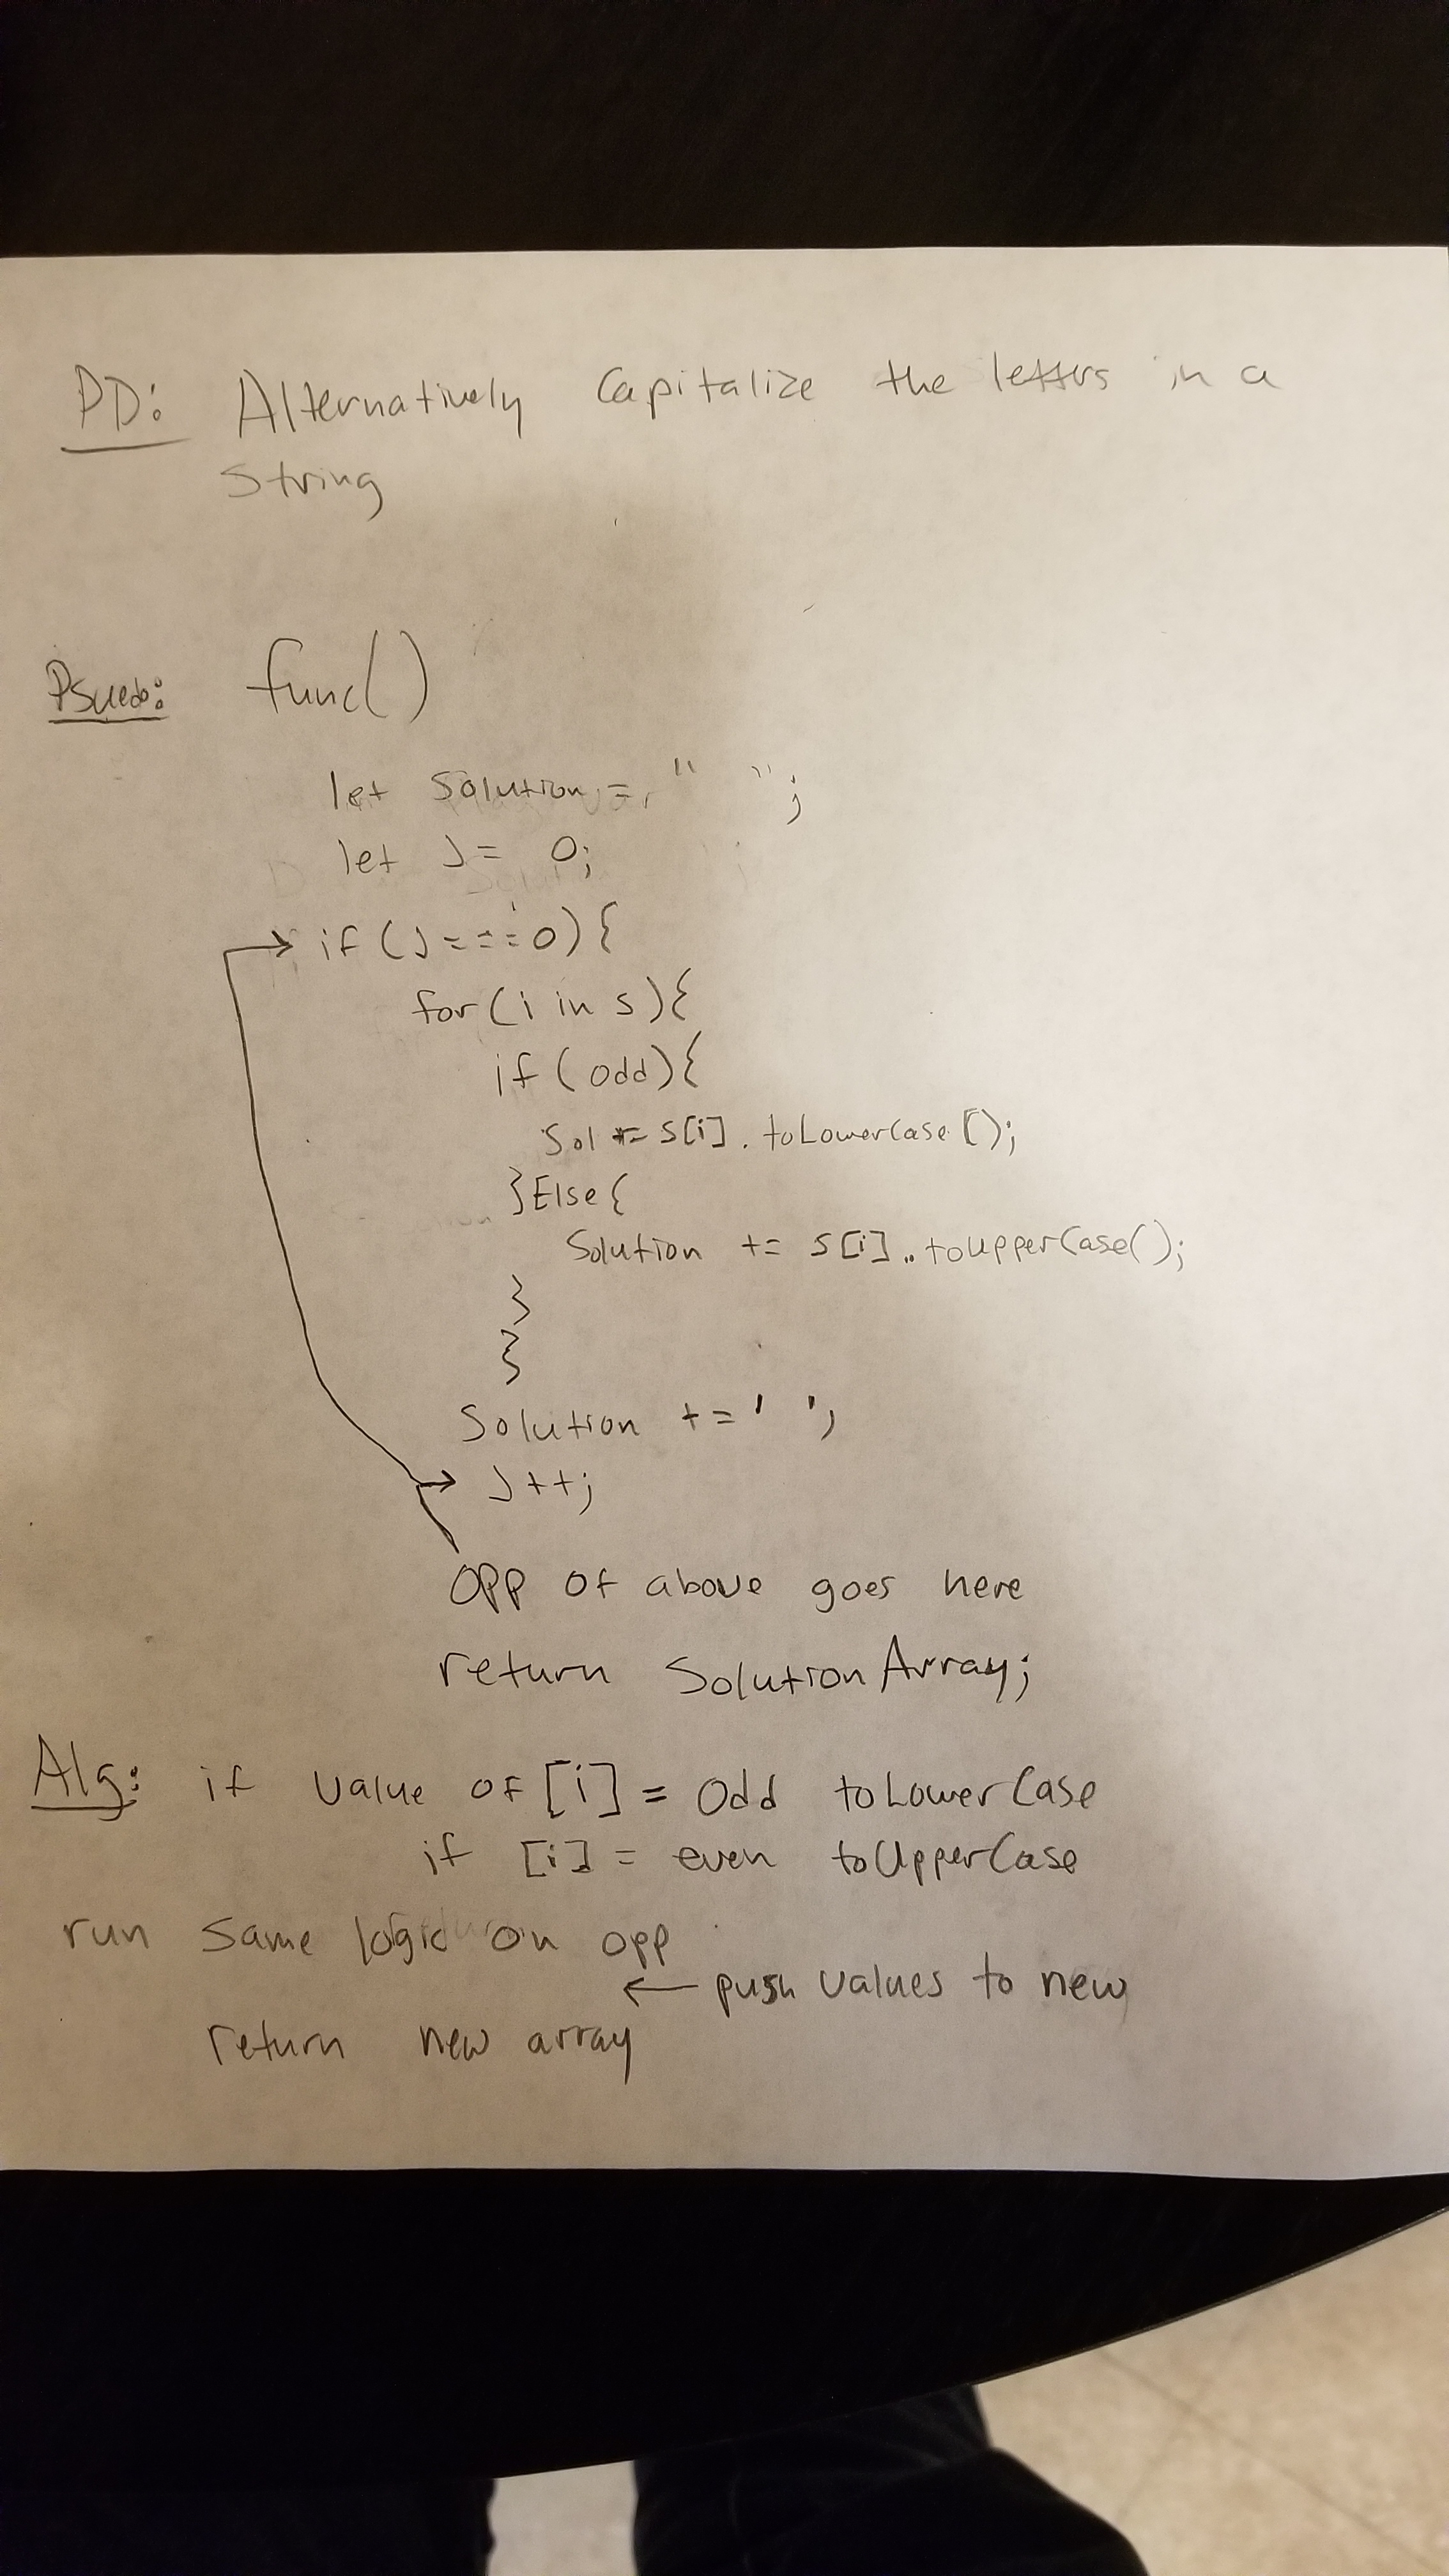 PD: Alternatively Capitalize the letters in a
String
Psuedo: func()
let Solution = " ";
let J = 0;
if (J === 0) {
for (i in s) {
if (odd) {
Sol += s[i].toLowerCase();
} Else {
Solution += s[i]..toUpperCase();
}
}
Solution += ' ';
J++;
Opp of above goes here
return SolutionArray;
Alg: if value of [i] = Odd toLowerCase
if [i] = even toUpperCase
run same logic on opp
← push values to new
return new array